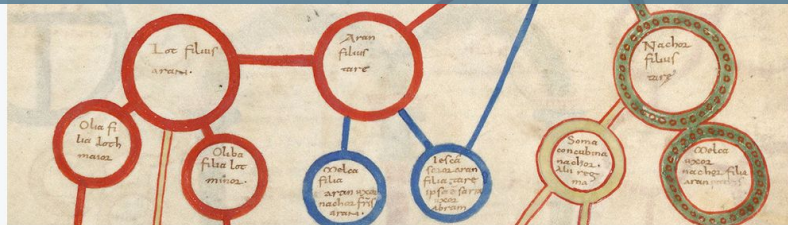 Lot filius
aram.
Aran
filius
tare
Nachor
filius
tare
Olia fi
lia Loth
maior
Oliba
filia Lot
minor.
Melca
filia
aran uxor
nachor fr̄is
aram.
Iesca
soror aran
filia tare
ipsa ē sara
uxor
abram
Soma
concubina
nachor.
Alii reg
ma
Melca
uxor
nachor filia
aran